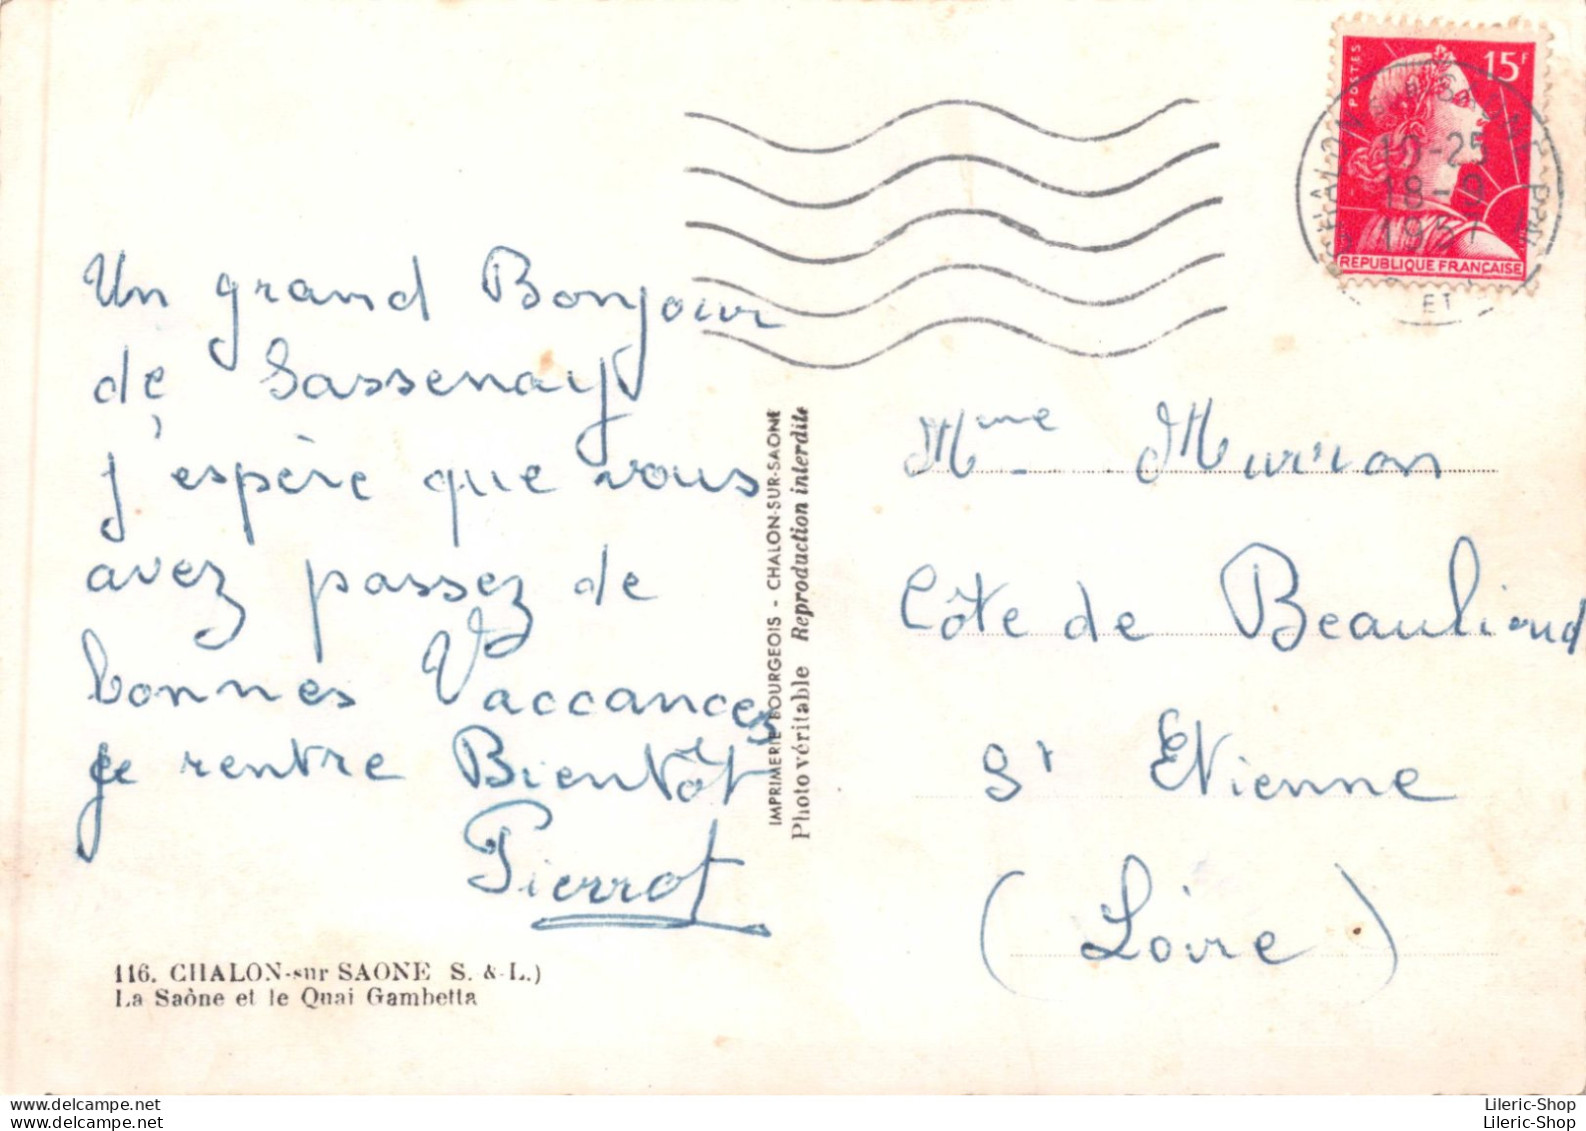 Un grand Bonjour
de Sassenay
j'espère que vous
avez passez de
bonnes Vaccances
je rentre Bientôt
Pierrot
116. CHALON-sur SAONE S. & L.)
La Saône et le Quai Gambetta
IMPRIMERIE BOURGEOIS - CHALON-SUR-SAONE
Photo véritable Reproduction interdite
POSTES
15F
REPUBLIQUE FRANÇAISE
CHALON S/SAONE
10-25
18-9
1957
ET
Mme Murron
Côte de Beauliand
St Etienne
(Loire)
Lileric-Shop
Lileric-Shop
www.delcampe.net
www.delcampe.net